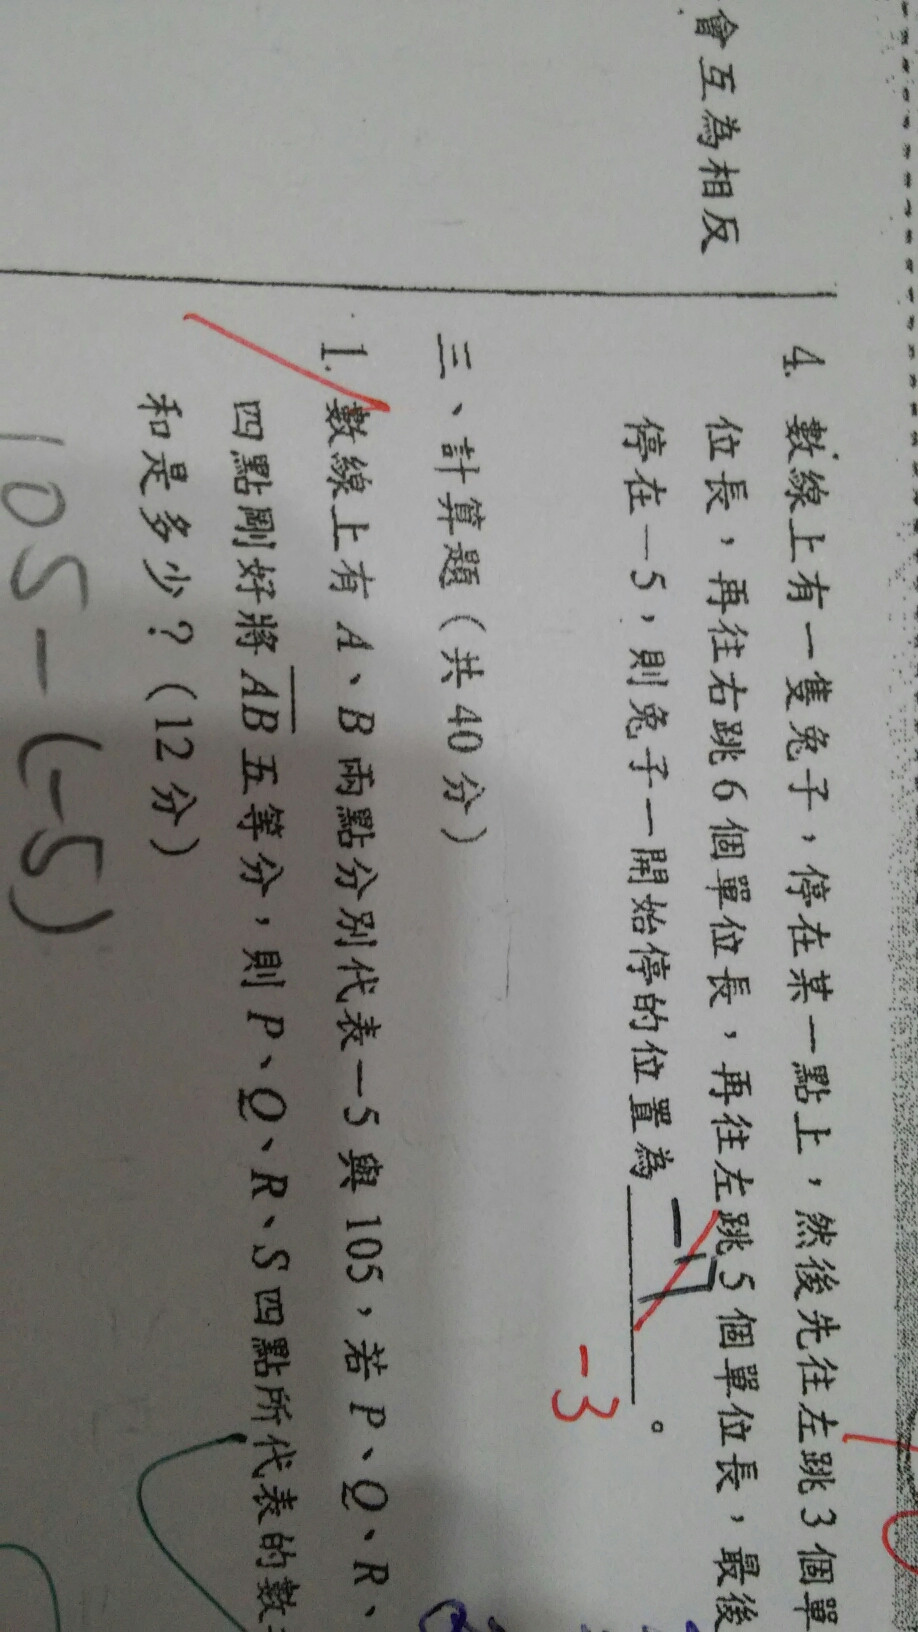 會互為相反
4. 數線上有一隻兔子，停在某一點上，然後先往左跳3個單
位長，再往右跳6個單位長，再往左跳5個單位長，最後
停在－5，則兔子一開始停的位置為 －7 。
-3
三、計算題（共40分）
1. 數線上有A、B兩點分別代表－5與105，若P、Q、R、
四點剛好將AB五等分，則P、Q、R、S四點所代表的數
和是多少？（12分）
105-(-5)